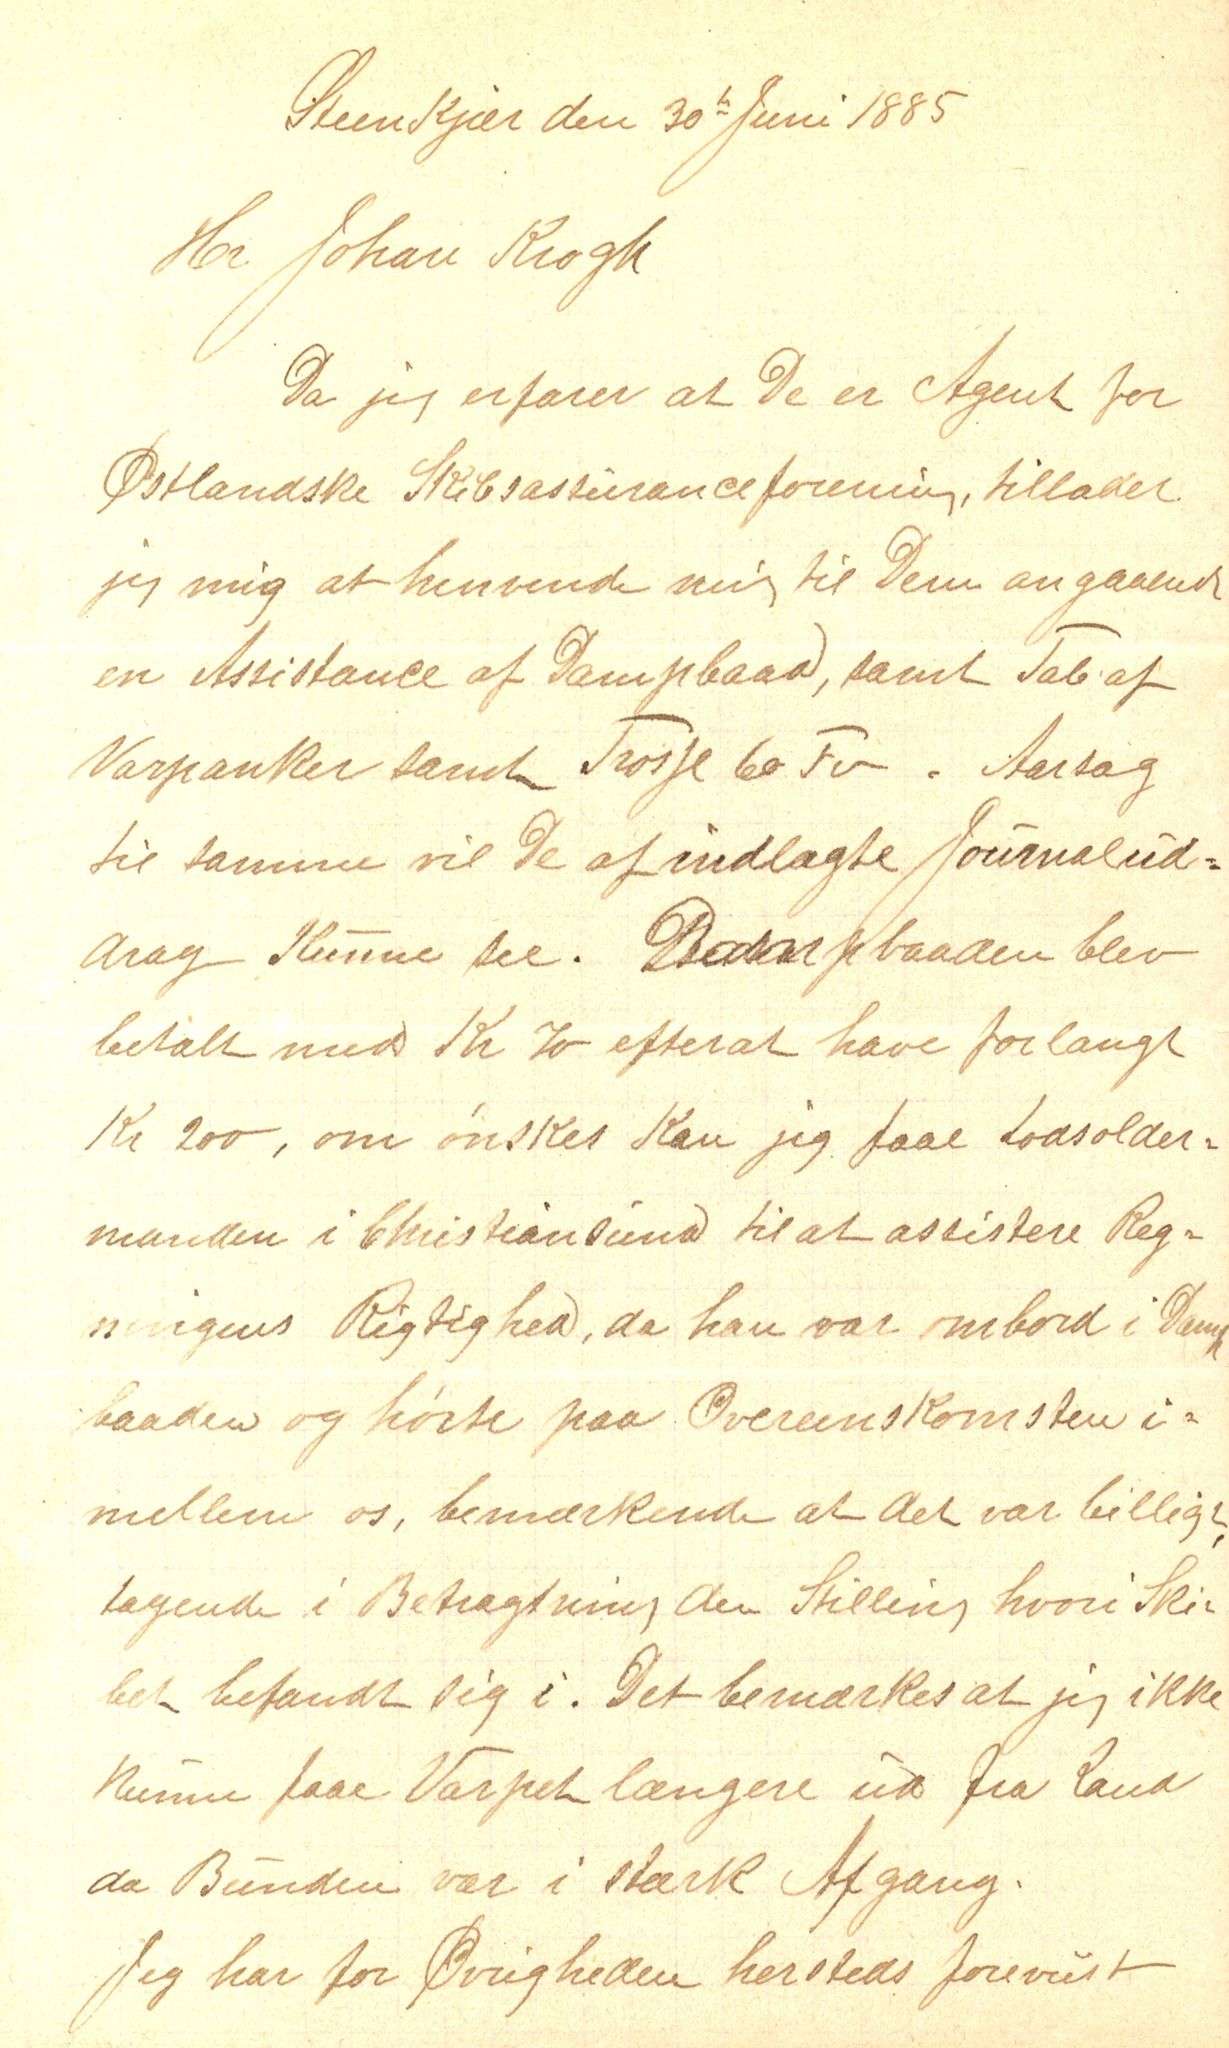 Steenkjær den 30te Juni 1885
Hr Johan Krogh
Da jeg erfarer at De er Agent for
Østlandske Skibsassuranceforening, tillader
jeg mig at henvende mig til Dem angaaende
en Assistance af Dampbaad, samt Tab af
Varpanker samt Trosse 60 Fv. Aarsag
til samme vil De af indlagte Journalud=
drag Kunne see. Dampbaaden blev
betalt med Kr 70 efterat have forlangt
Kr 200, om ónskes Kan jeg faae Lodsolder=
manden i Christiansund til at assistere Reg=
ningens Rigtighed, da han var ombord i Damp
baaden og hórte paa Overeenskomsten i=
mellem os, bemærkende at det var billigt,
tagende i Betragtning den Stilling hvori Ski=
bet befandt sig i. Det bemærkes at jeg ikke
Kunne faae Varpet længere ud fra Land
da Bunden var i stærk Afgang.
Jeg har for Øvrigheden hersteds foreviist